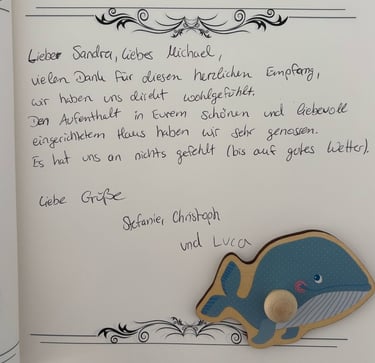 Lieber Sandra, liebes Michael,
vielen Dank für diesen herzlichen Empfang,
wir haben uns direkt wohlgefühlt.
Den Aufenthalt in Eurem schönen und liebevoll
eingerichtetem Haus haben wir sehr genossen.
Es hat uns an nichts gefehlt (bis auf gutes Wetter).
Liebe Grüße
Stefanie, Christoph
und Luca